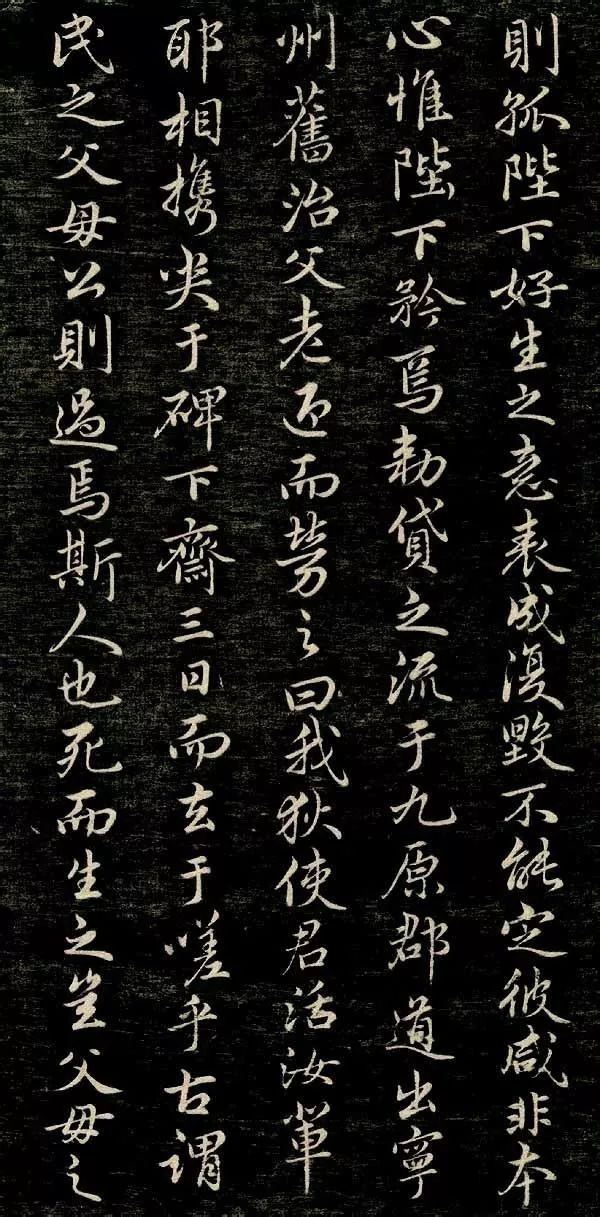 則孤陛下好生之意表成復毀不能定彼咸非本
心惟陛下矜焉勅貸之流于九原郡道出寧
州舊治父老迎而勞之曰我狄使君活汝輩
耶相携哭于碑下齋三日而去于嗟乎古謂
民之父母公則過焉斯人也死而生之豈父母之